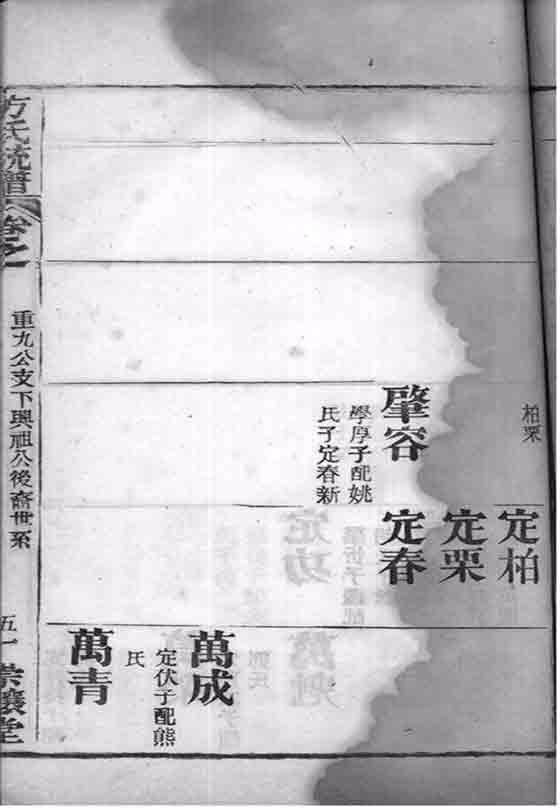 柏栗
肇容
學厚子配姚
氏子定春新
定柏
定栗
定春
萬成
定伏子配熊
氏
萬青
方氏統譜
卷之一
重九公支下興祖公後裔世系
五一
崇讓堂